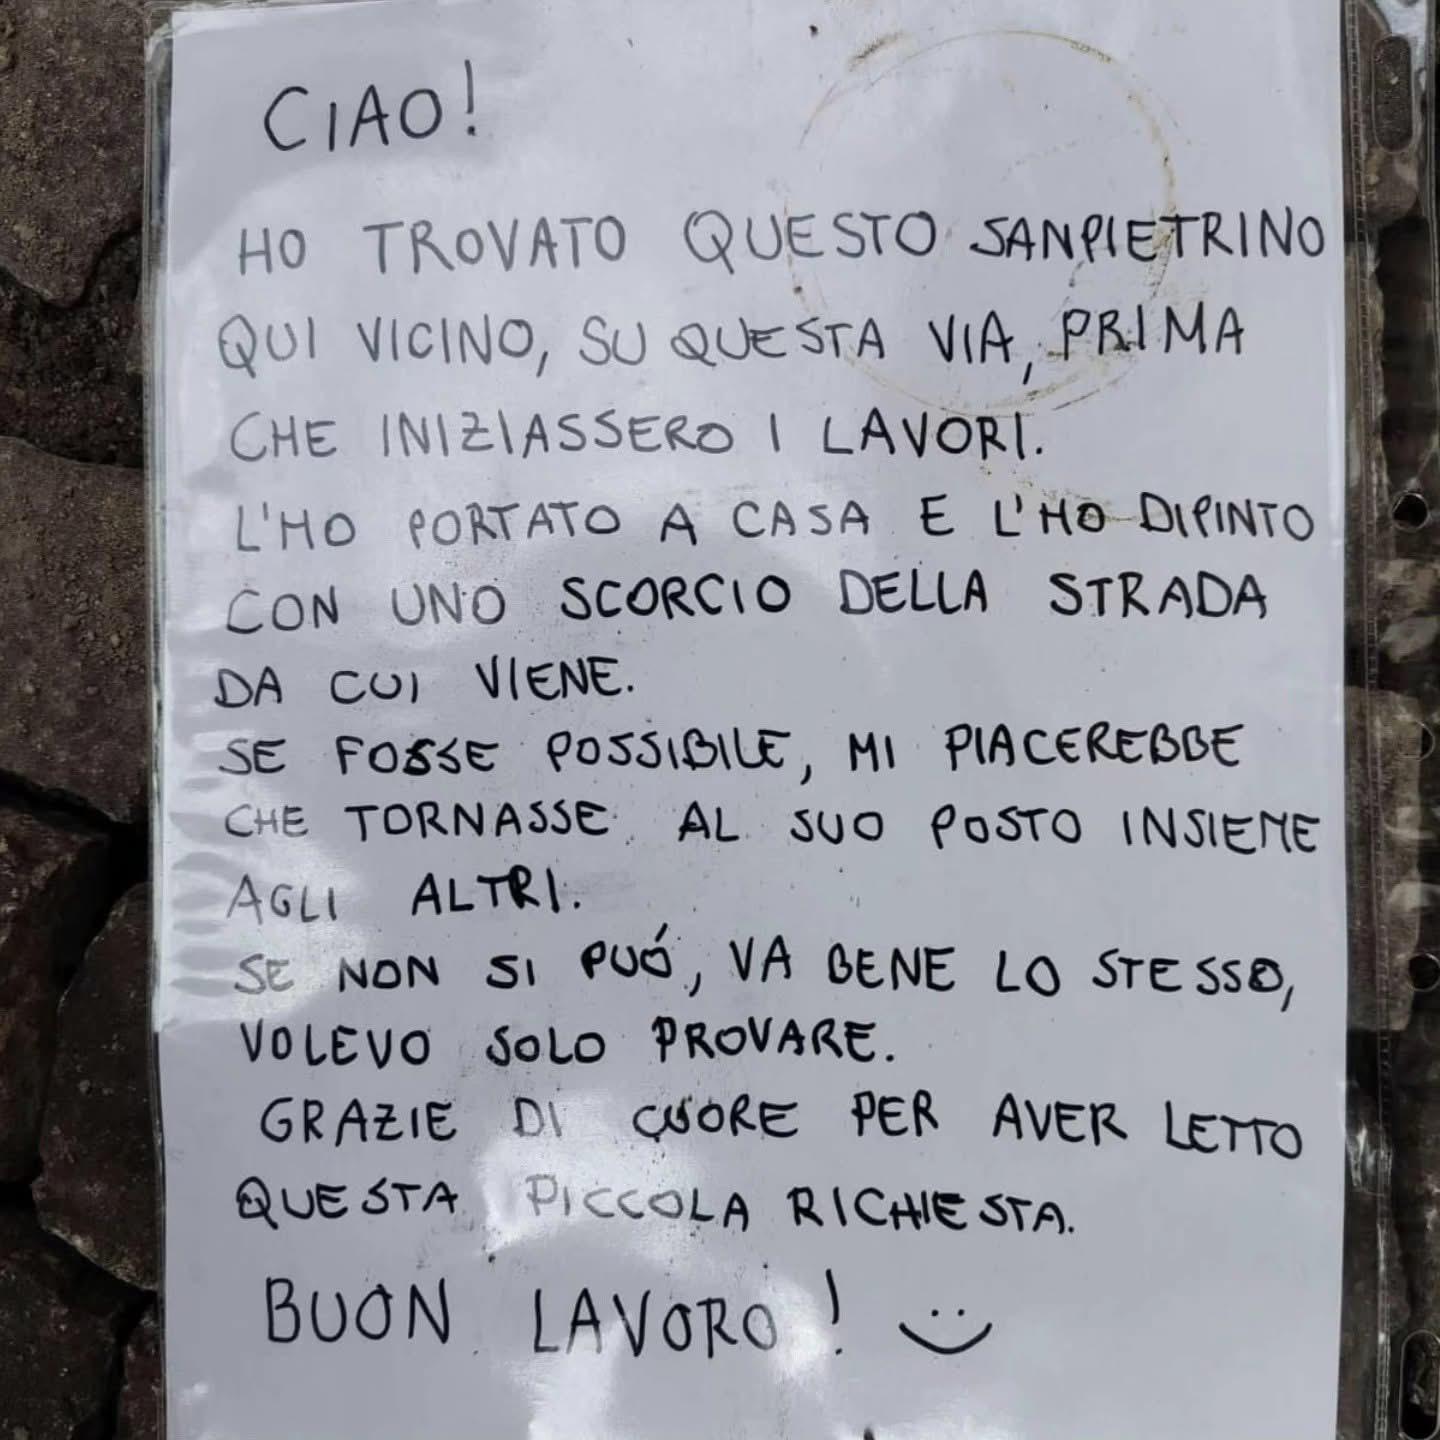 CIAO!
HO TROVATO QUESTO SANPIETRINO
QUI VICINO, SU QUESTA VIA, PRIMA
CHE INIZIASSERO I LAVORI.
L'HO PORTATO A CASA E L'HO DIPINTO
CON UNO SCORCIO DELLA STRADA
DA CUI VIENE.
SE FOSSE POSSIBILE, MI PIACEREBBE
CHE TORNASSE AL SUO POSTO INSIEME
AGLI ALTRI.
SE NON SI PUÓ, VA BENE LO STESSO,
VOLEVO SOLO PROVARE.
GRAZIE DI CUORE PER AVER LETTO
QUESTA PICCOLA RICHIESTA.
BUON LAVORO!